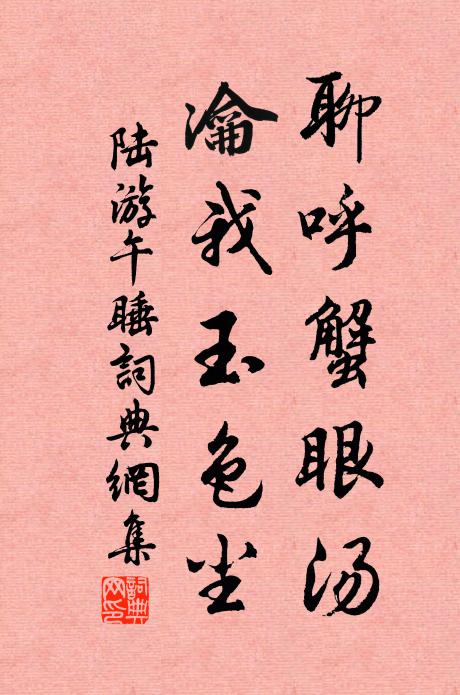 聊呼蟹眼汤
瀹我玉色尘
陆游午睡詞典網集
詞典网印